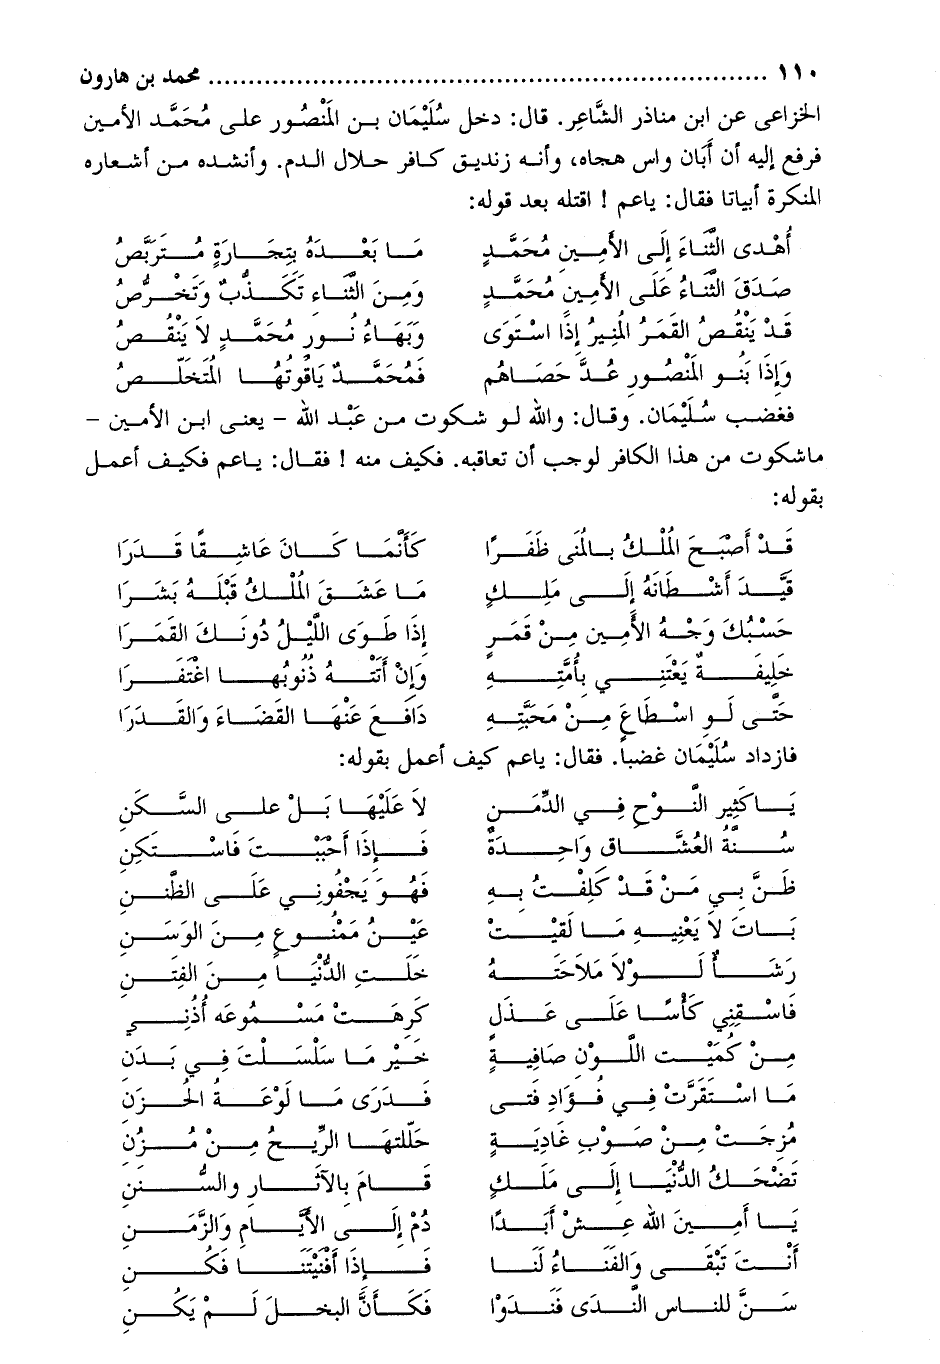 ١١٠ ................................................................ محمد بن هارون
الخزاعى عن ابن مناذر الشَّاعِرِ. قال: دخل سُلَيْمَان بن المَنْصُور على مُحَمَّد الأمين
فرفع إليه أن أَبَان واس هجاه، وأنه زنديق كافر حلال الدم. وأنشده من أشعاره
المنكرة أبياتا فقال: ياعم ! اقتله بعد قوله:
أَهْدى الثَّنَاءَ إِلَى الأَمِينِ مُحَمَّدٍ مَا بَعْدَهُ بِتِجَارَةٍ مُتَرَبَّصُ
صَدَقَ الثَّنَاءُ عَلَى الأَمِينِ مُحَمَّدٍ وَمِنَ الثَّنَاءِ تَكَذُّبٌ وَتَخَرُّصُ
قَدْ يَنْقُصُ القَمَرُ المُنِيرُ إِذَا اسْتَوَى وَبَهَاءُ نُورِ مُحَمَّدٍ لاَ يَنْقُصُ
وَإِذَا بَنُو المَنْصُورِ عُدَّ حَصَاهُم فَمُحَمَّدٌ يَاقُوتُهَا المُتَخَلِّصُ
فغضب سُلَيْمَان. وقال: والله لو شكوت من عَبْد الله – يعنى ابن الأمين –
ماشكوت من هذا الكافر لوجب أن تعاقبه. فكيف منه ! فقال: ياعم فكيف أعمل
بقوله:
قَدْ أَصْبَحَ المُلْكُ بالمُنَى ظَفَرًا كَأَنَّمَا كَانَ عَاشِقًا قَدَرَا
قَيَّدَ أَشْطَانَهُ إِلَى مَلِكٍ مَا عَشَقَ المُلْكُ قَبْلَهُ بَشَرَا
حَسْبُكَ وَجْهُ الأَمِينِ مِنْ قَمَرٍ إِذَا طَوَى اللَّيْلُ دُونَكَ القَمَرَا
خَلِيفَةٌ يَعْتَنِي بِأُمَّتِهِ وَإِنْ أَتَتْهُ ذُنُوبُهَا اغْتَفَرَا
حَتَّى لَو اسْطَاعَ مِنْ مَحَبَّتِهِ دَافَعَ عَنْهَا القَضَاءَ وَالقَدَرَا
فازداد سُلَيْمَان غضباً. فقال: ياعم كيف أعمل بقوله:
يَاكَثِيرَ النَّوْحِ فِي الدِّمَنِ لاَ عَلَيْهَا بَلْ على السَّكَنِ
سُنَّةُ العُشَّاقِ وَاحِدَةٌ فَإِذَا أَحْبَبْتَ فَاسْتَكِنِ
ظَنَّ بِي مَنْ قَدْ كَلِفْتُ بِهِ فَهُوَ يَجْفُونِي عَلَى الظِّنَنِ
بَاتَ لاَ يَعْنِيهِ مَا لَقِيَتْ عَيْنُ مَمْنُوعٍ مِنَ الوَسَنِ
رَشَأٌ لَوْلاَ مَلاَحَتُهُ خَلَتِ الدُّنْيَا مِنَ الفِتَنِ
فَاسْقِنِي كَأْسًا عَلَى عَذَلٍ كَرِهَتْ مَسْمُوعَه أُذُنِي
مِنْ كُمَيْتِ اللَّوْنِ صَافِيَةٍ خَيْرَ مَا سَلْسَلْتَ فِي بَدَنِ
مَا اسْتَقَرَّتْ فِي فُؤَادِ فَتًى فَدَرَى مَا لَوْعَةُ الحُزَنِ
مُزِجَتْ مِنْ صَوْبِ غَادِيَةٍ حَلَّلَتهَا الرِّيحُ مِنْ مُزُنِ
تَضْحَكُ الدُّنْيَا إِلَى مَلِكٍ قَامَ بالآثَارِ والسُّنَنِ
يَا أَمِينَ الله عِشْ أَبَدًا دُمْ إِلَى الأَيَّامِ وَالزَّمَنِ
أَنْتَ تَبْقَى وَالفَنَاءُ لَنَا فَإِذَا أَفْنَيْتَنَا فَكُنِ
سَنَّ للناس النَّدَى فَنَدَوْا فَكَأَنَّ البخلَ لَمْ يَكُنِ